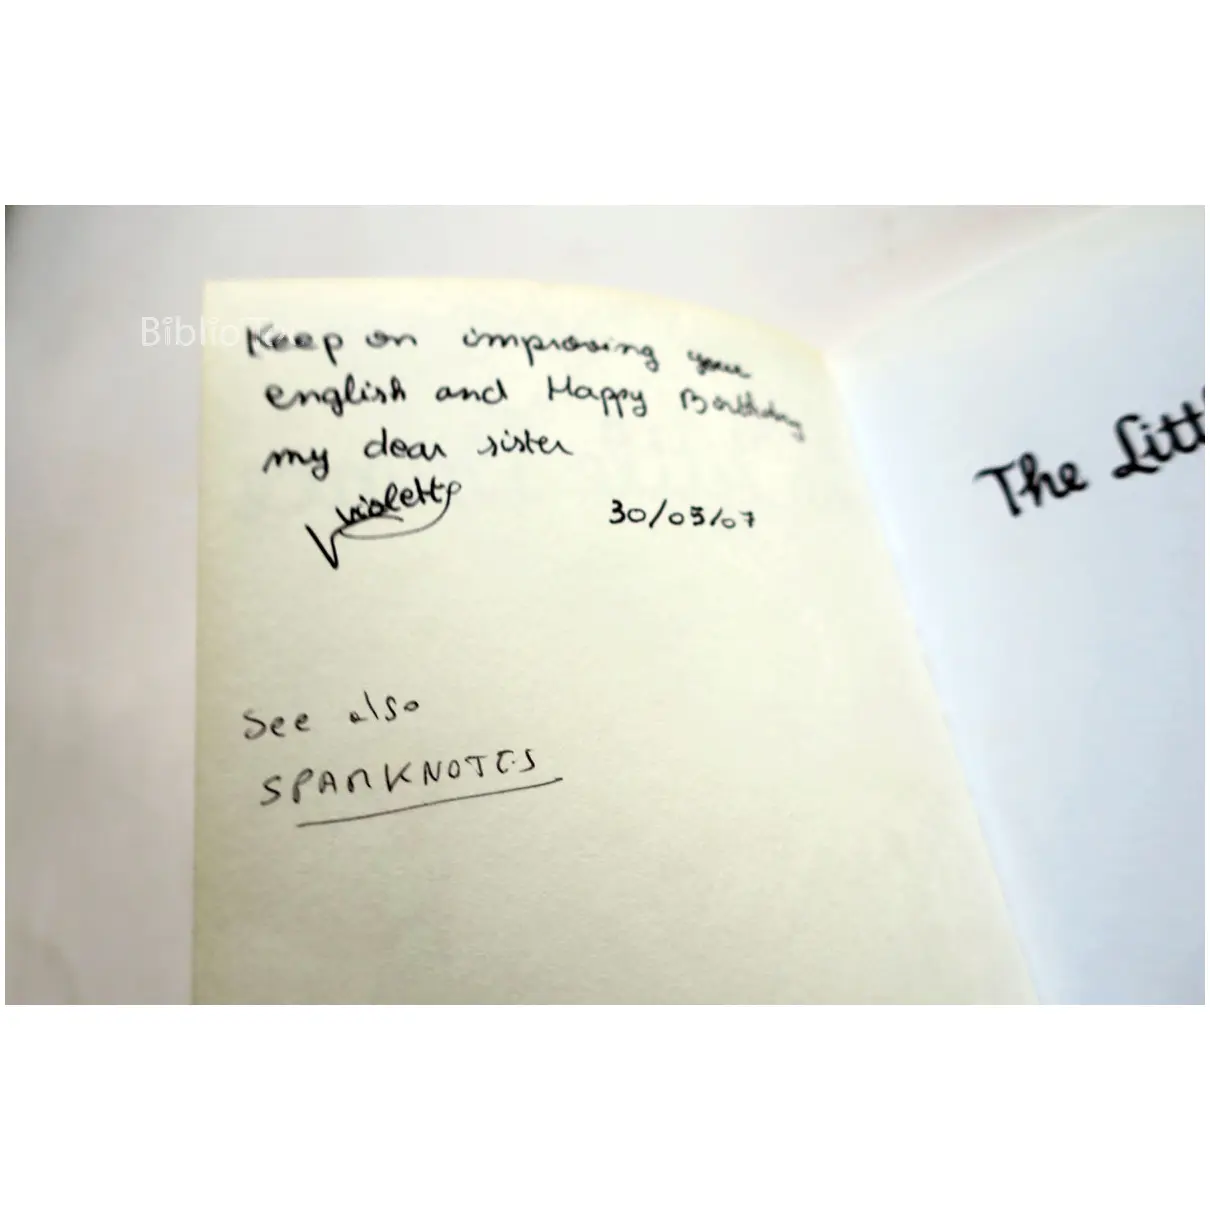 Keep on improving your
english and Happy Birthday
my dear sister
violette
30/03/07
See also
SPARKNOTES
The Litt
Biblio